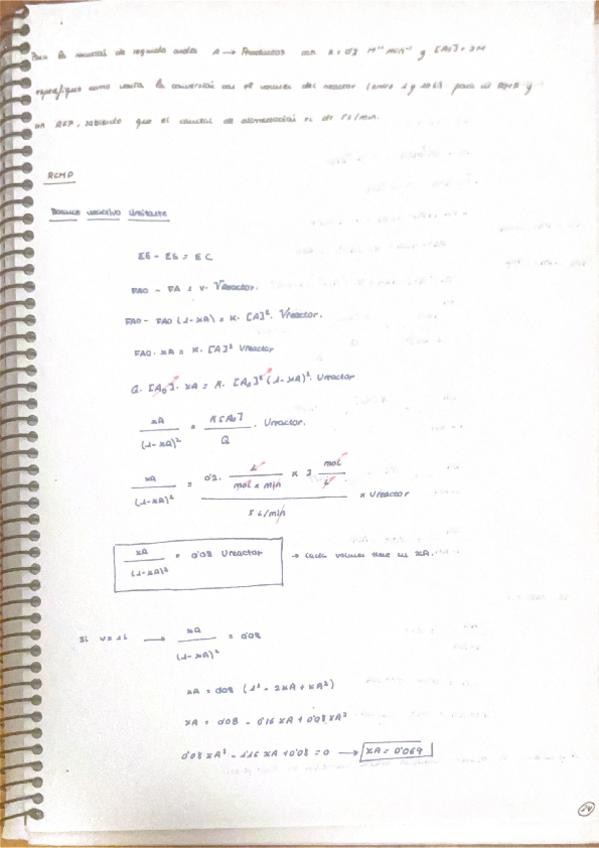 Para la reacción de segundo orden A → Productos con k = 0'2 M⁻¹ min⁻¹ y [A₀] = 2M
represéntese como varía la conversión con el volumen del reactor (entre 1 y 10 L) para un RCMP y
un RCFP, sabiendo que el caudal de alimentación es de 5 L/min.
RCMP
Balance reactivo limitante
EE - ES = EC
FA0 - FA = v · Vreactor.
FA0 - FA0 (1-xA) = K · [A]² · Vreactor.
FA0 · xA = K · [A]² Vreactor
Q · [A₀] · xA = K · [A₀]² (1-xA)² · Vreactor
xA / (1-xA)² = K[A₀] / Q · Vreactor.
xA / (1-xA)² = 0'2 · L / mol x min x 2 mol / L / 5 L/min x Vreactor
xA / (1-xA)² = 0'08 Vreactor → cada volumen tiene un xA.
Si V = 1L → xA / (1-xA)² = 0'08
xA = 0'08 (1² - 2xA + xA²)
xA = 0'08 - 0'16 xA + 0'08 xA²
0'08 xA² - 1'16 xA + 0'08 = 0 → xA = 0'069